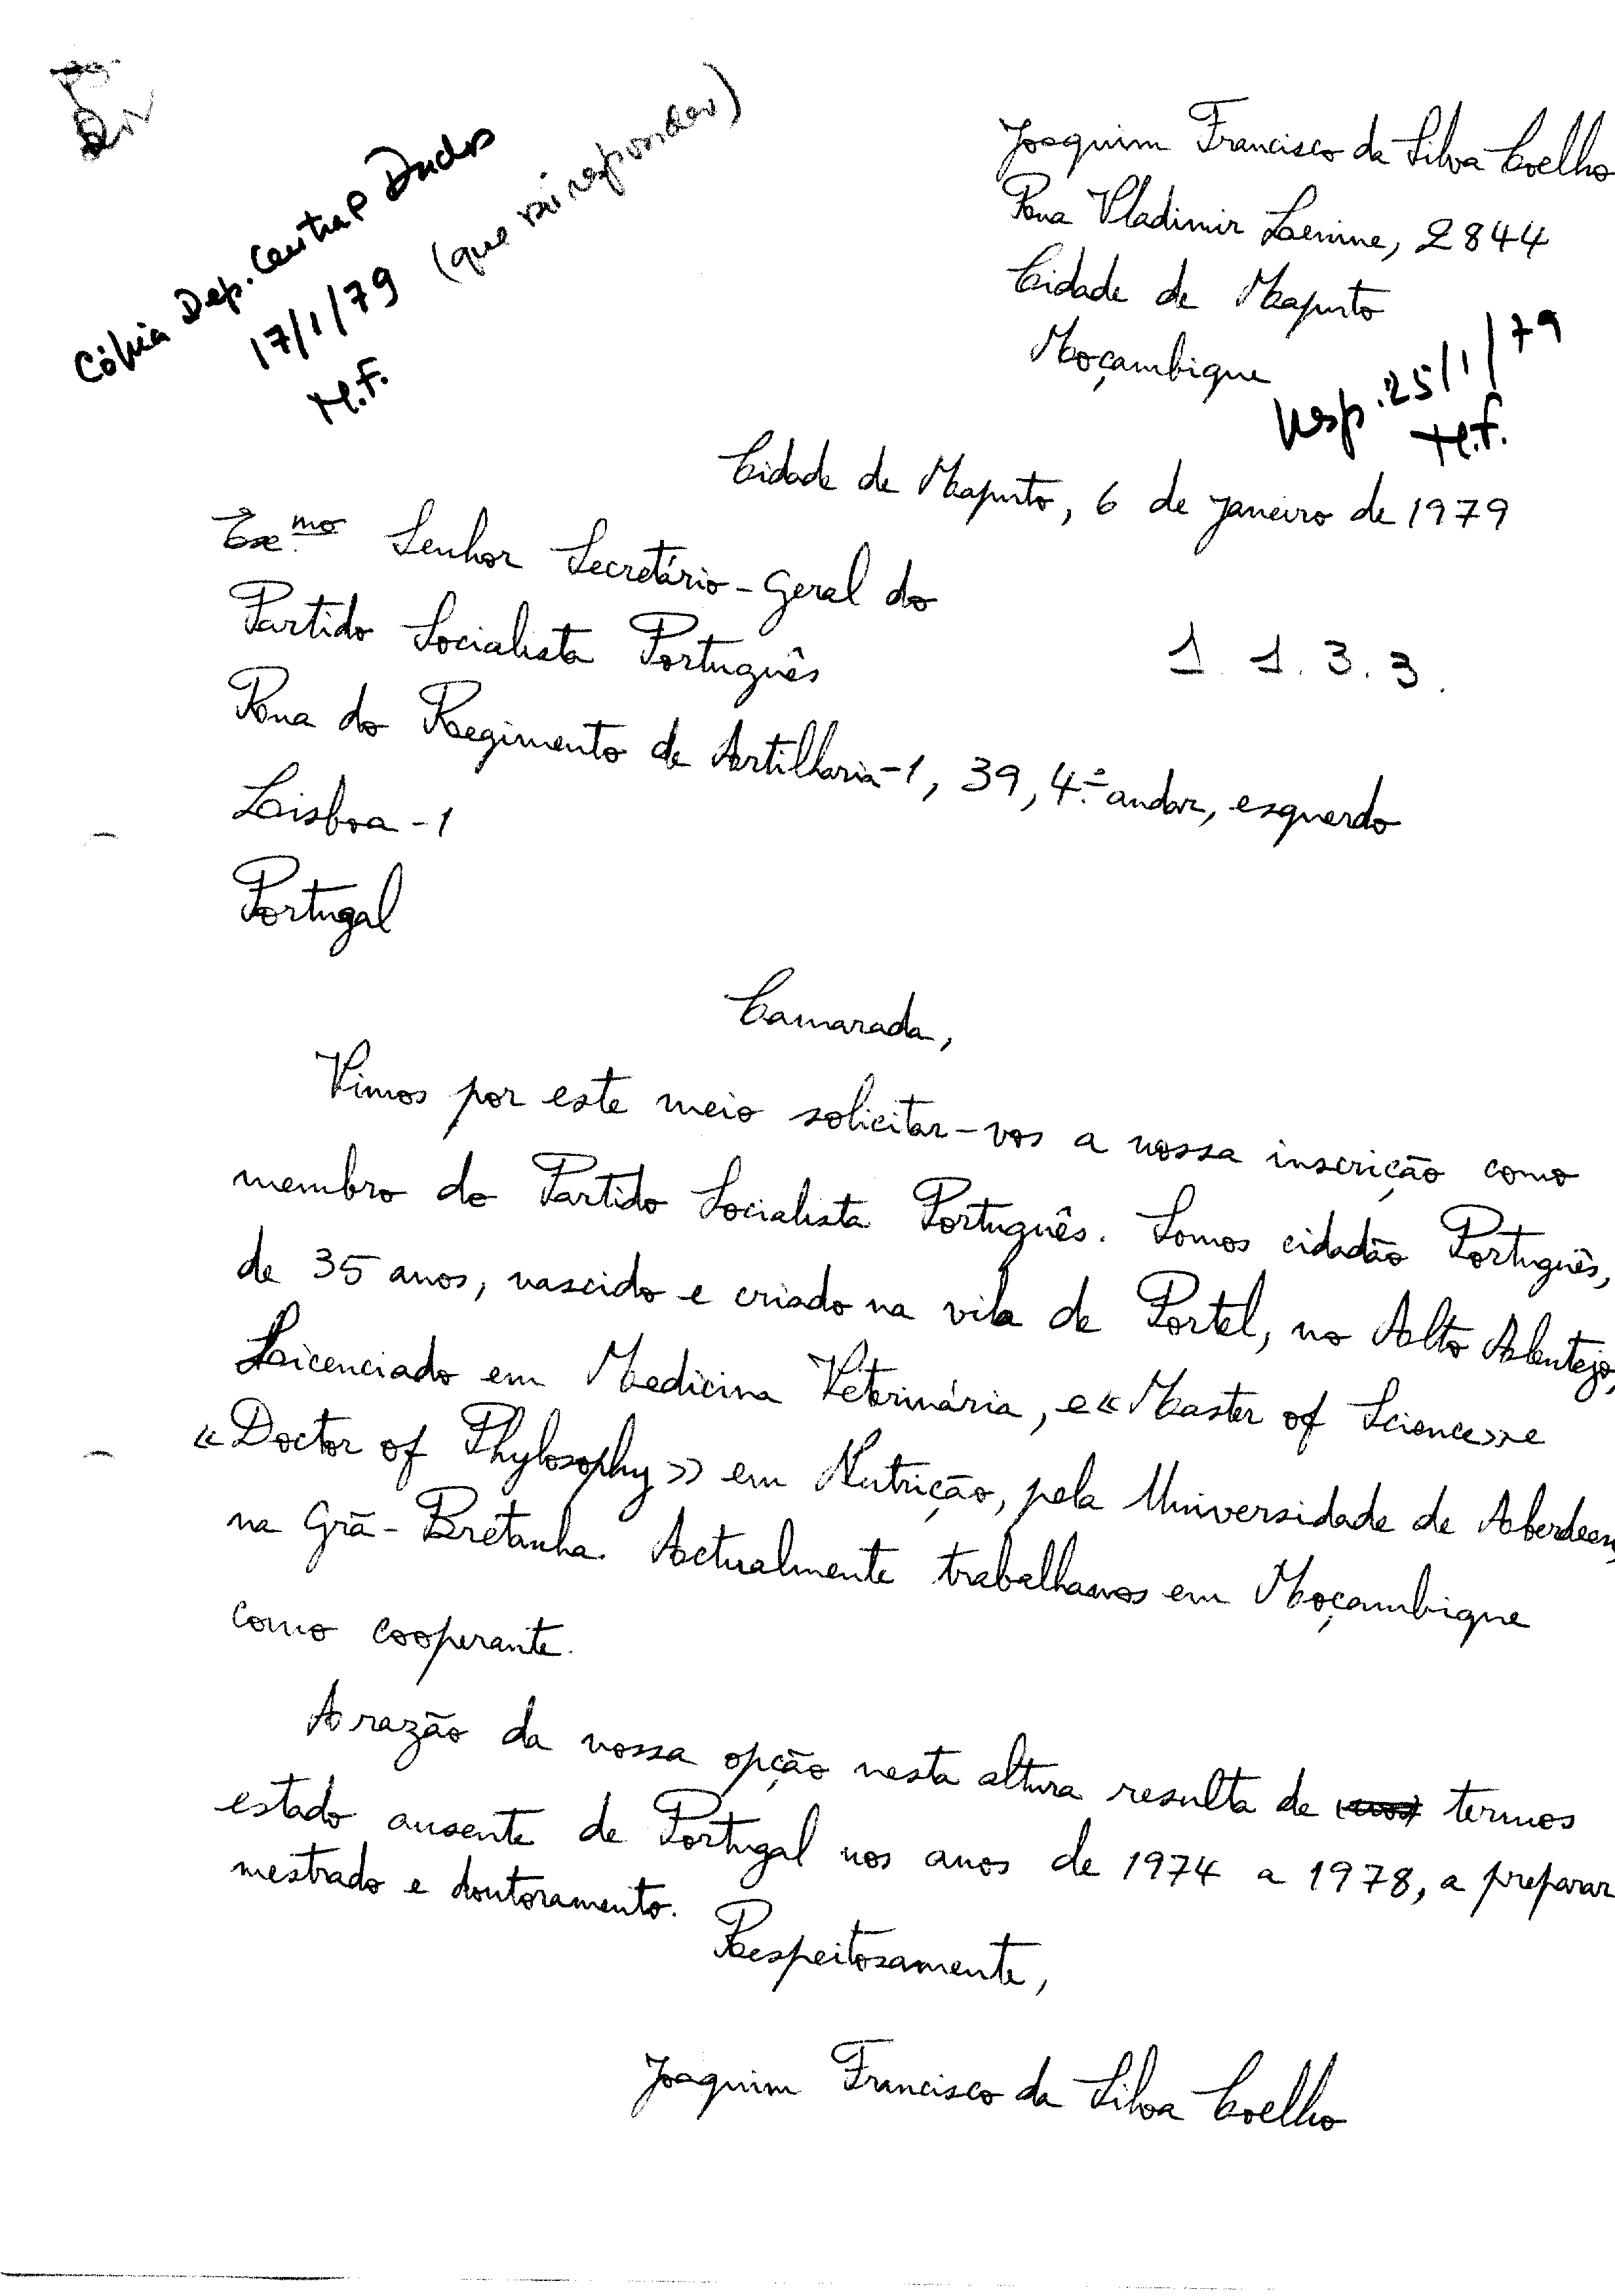 Cópia Dep. Central Dados
17/1/79 (que vai responder)
M.F.
Joaquim Francisco da Silva Coelho
Rua Vladimir Lenine, 2844
Cidade de Maputo
Moçambique
resp. 25/1/79
M.F.
Cidade de Maputo, 6 de Janeiro de 1979
Ex.mo Senhor Secretário-Geral do
Partido Socialista Português
1.1.3.3.
Rua do Regimento de Artilharia-1, 39, 4.º andar, esquerdo
Lisboa-1
Portugal
Camarada,
Vimos por este meio solicitar-vos a nossa inscrição como
membro do Partido Socialista Português. Somos cidadão Português,
de 35 anos, nascido e criado na vila de Portel, no Alto Alentejo,
Licenciado em Medicina Veterinária, e «Master of Science» e
«Doctor of Phylosophy» em Nutrição, pela Universidade de Aberdeen,
na Grã-Bretanha. Actualmente trabalhamos em Moçambique
como cooperante.
A razão da nossa opção nesta altura resulta de termos
estado ausente de Portugal nos anos de 1974 a 1978, a preparar
mestrado e doutoramento.
Respeitosamente,
Joaquim Francisco da Silva Coelho